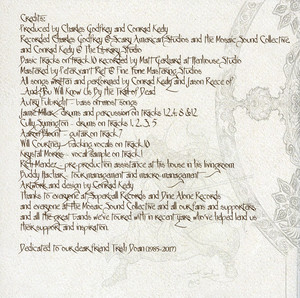 Credits:
Produced by Charles Godfrey and Conrad Keely
Recorded Charles Godfrey @ Scary American Studios and the Mosaic Sound Collective
and Conrad Keely @ The Library Studio
Basic tracks on track 10 recorded by Matt Gerhard at Henhouse Studio
Mastered by @ Fine Tone Mastering Studios
All songs written and performed by Conrad Keely and Jason Reece of
...And You Will Know Us By The Trail of Dead
Autry Fulbright - bass on most songs
Jamie Miller - drums and percussion on tracks 1, 2, 4, 8 & 12
Cully Symington - drums on tracks 1, 2, 3, 5
Aaron Blount - guitar on track 7
Will Courtney - backing vocals on track 10
Krystal Morris - vocal sample on track 1
Rich Mendez - pre-production assistance at his house in his livingroom
Buddy Hachar - tour management and macro-management
Artwork and design by Conrad Keely
Thanks to everyone at Superball Records and Dine Alone Records
and everyone at the Mosaic Sound Collective and all our fans and supporters
and all the great bands we've toured with in recent years who've helped lend us
their support and inspiration.
Dedicated to our dear friend Doan (1985-2017)